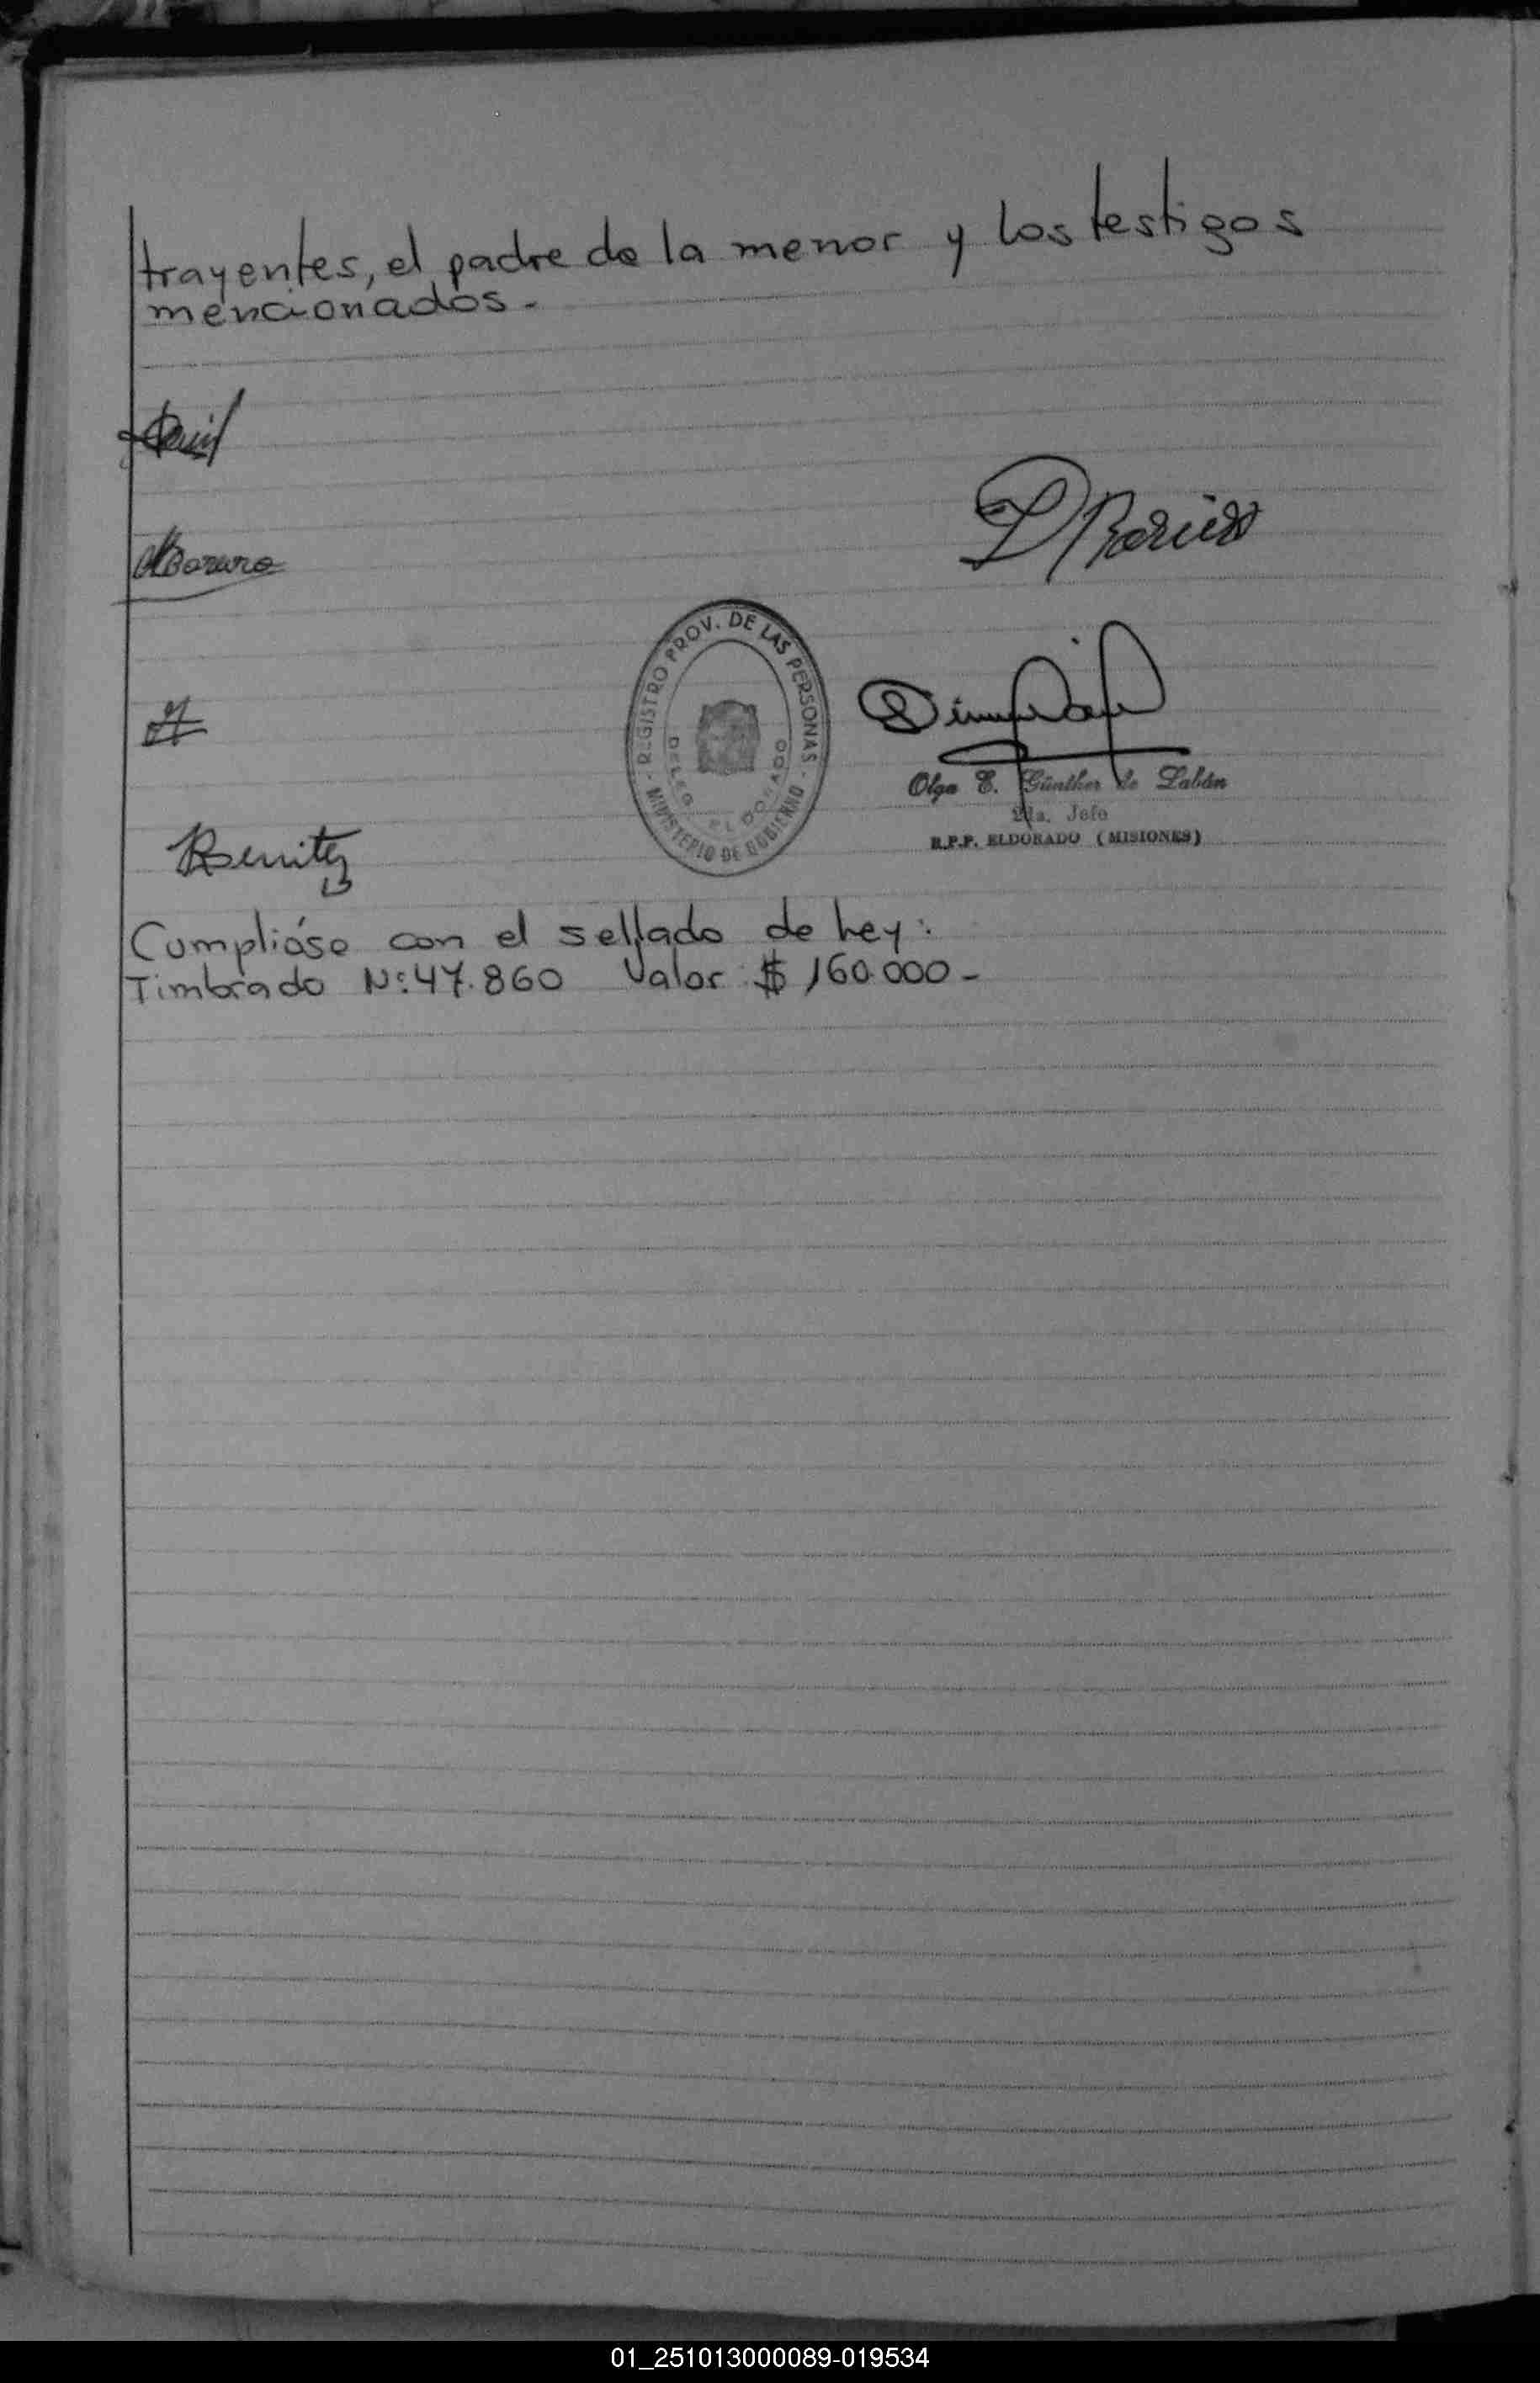 trayentes, el padre de la menor y los testigos
mencionados.-
Benitez
REGISTRO PROV. DE LAS PERSONAS - MINISTERIO DE GOBIERNO -
DELEG. ELDORADO
Olga E. Günther de Labán
2da. Jefe
R.P.P. ELDORADO (MISIONES)
Cumplióse con el sellado de Ley:
Timbrado Nº: 47.860 Valor $ 160.000-
01_251013000089-019534